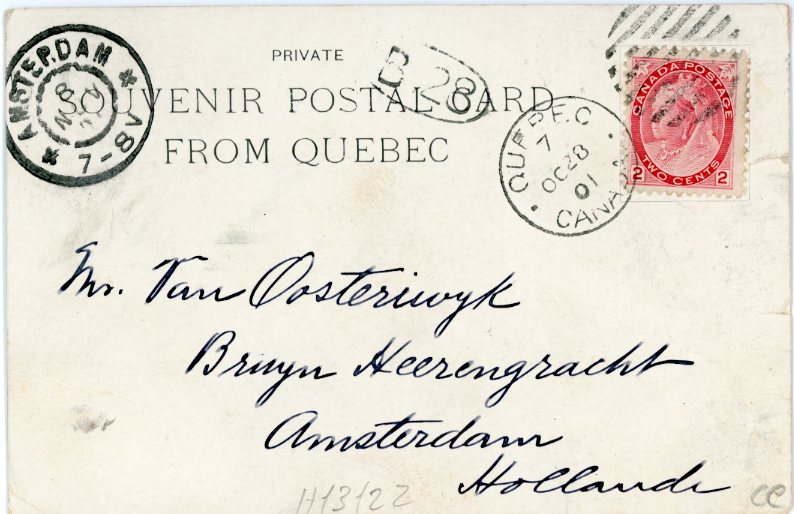 PRIVATE
SOUVENIR POSTAL CARD
FROM QUEBEC
AMSTERDAM
7-8V
B 28
QUEBEC
7
OC 28
01
CANADA
CANADA POSTAGE
2 TWO CENTS 2
Mr. Van Oosteriwyk
Bruyn Heerengracht
Amsterdam
Hollande
H13122
CC